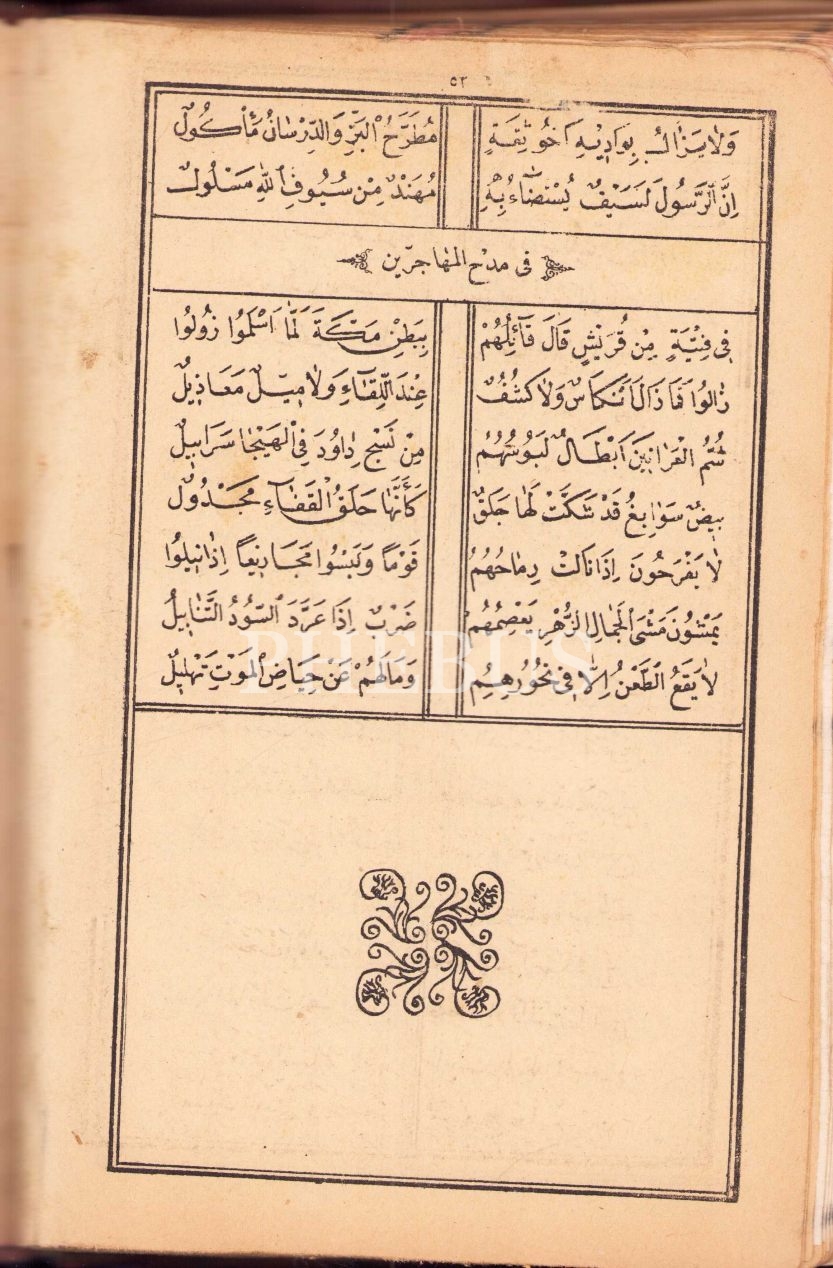 ٥٢
وَلَا يَزَالُ بِوَادِيهِ اَخُو ثِقَةٍ مُطَرَّحُ الْبَزِّ وَالدِّرْسَانُ مَأْكُولُ
اِنَّ الرَّسُولَ لَسَيْفٌ يُسْتَضَاءُ بِهِ مُهَنَّدٌ مِنْ سُيُوفِ اللهِ مَسْلُولُ
فى مدح المهاجرين
فِى فِتْيَةٍ مِنْ قُرَيْشٍ قَالَ قَآئِلُهُمْ بِبَطْنِ مَكَّةَ لَمَّا اَسْلَمُوا زُولُوا
زَالُوا فَمَا ذَالَ اَنْكَاسٌ وَلَا كُشُفٌ عِنْدَ اللِّقَاءِ وَلَا مِيلٌ مَعَاذِيلُ
شُمُّ الْعَرَانِينَ اَبْطَالٌ لَبُوسُهُمُ مِنْ نَسْجِ دَاوُدَ فِى الْهَيْجَا سَرَابِيلُ
بِيضٌ سَوَابِغُ قَدْ شَكَّتْ لَهَا حَلَقٌ كَأَنَّهَا حَلَقُ الْقَفْاءِ مَجْدُولُ
لَا يَفْرَحُونَ اِذَا نَالَتْ رِمَاحُهُمُ قَوْمًا وَلَيْسُوا مَجَازِيعًا اِذَا نِيلُوا
يَمْشُونَ مَشْىَ الْجَمَالِ الزُّهْرِ يَعْصِمُهُمْ ضَرْبٌ اِذَا عَرَّدَ السُّودُ التَّنَابِيلُ
لَا يَقَعُ الطَّعْنُ اِلَّا فِى نُحُورِهِمِ وَمَا لَهُمْ عَنْ حِيَاضِ الْمَوْتِ تَهْلِيلُ
PHEBUS